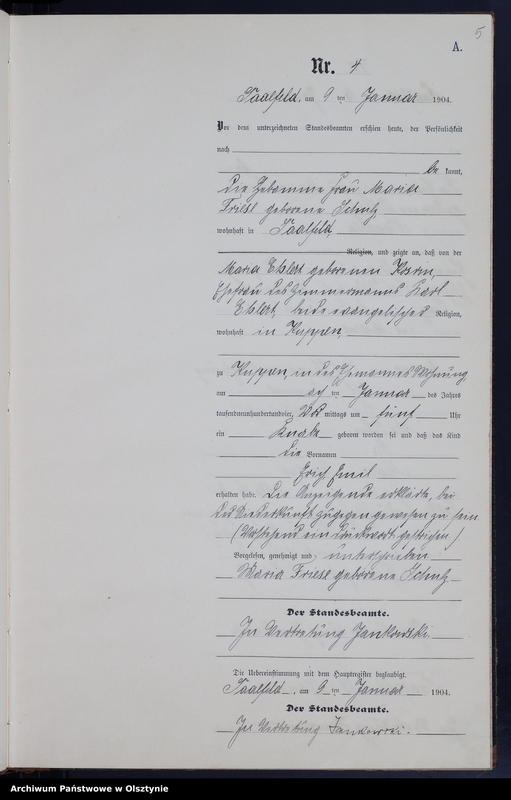 5
A.
Nr. 4
Saalfeld, am 9 ten Januar 1904.
Vor dem unterzeichneten Standesbeamten erschien heute, der Persönlichkeit
nach
be kannt,
die Hebamme Frau Maria
Friese geborene Schulz,
wohnhaft in Saalfeld,
Religion, und zeigte an, daß von der
Maria Ehlert geborenen
Ehefrau des Zimmermanns Karl
Ehlert, beide evangelischer Religion,
wohnhaft in Kuppen,
zu Kuppen, in des Ehemannes Wohnung,
am ten Januar des Jahres
tausendneunhundertundvier, Vor mittags um fünf Uhr
ein Knabe geboren worden sei und daß das Kind
die Vornamen
Erich Emil
erhalten habe. Die Anzeigende erklärte, bei
der Niederkunft zugegen gewesen zu sein
(Vorstehend ein Druckwort gestrichen)
Vorgelesen, genehmigt und unterschrieben
Maria Friese geborene Schulz
Der Standesbeamte.
In Vertretung Jankowski.
Die Uebereinstimmung mit dem Hauptregister beglaubigt.
Saalfeld, am 9 ten Januar 1904.
Der Standesbeamte.
In Vertretung Jankowski.
Archiwum Państwowe w Olsztynie